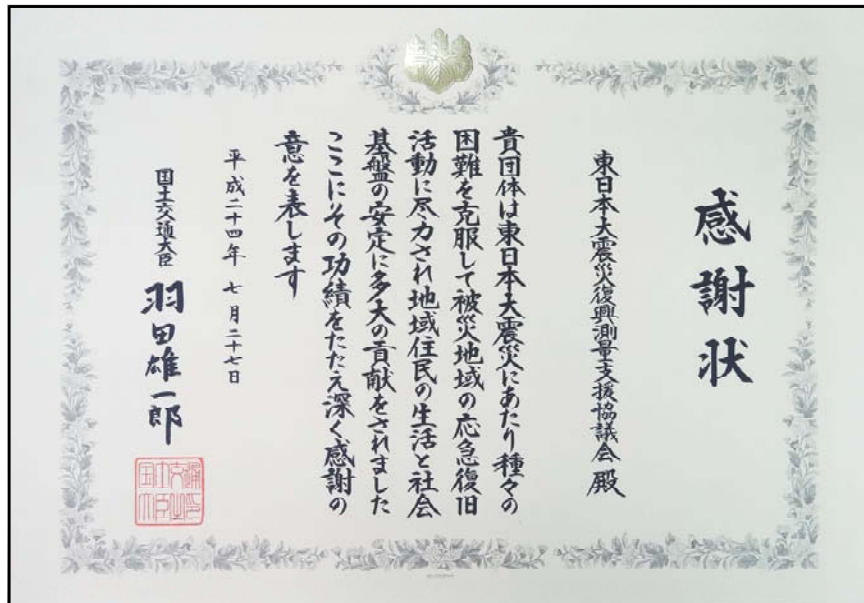 感謝状
東日本大震災復興測量支援協議会 殿
貴団体は東日本大震災にあたり種々の
困難を克服して被災地域の応急復旧
活動に尽力され地域住民の生活と社会
基盤の安定に多大の貢献をされました
ここにその功績をたたえ深く感謝の
意を表します
平成二十四年 七月二十七日
国土交通大臣 羽田雄一郎